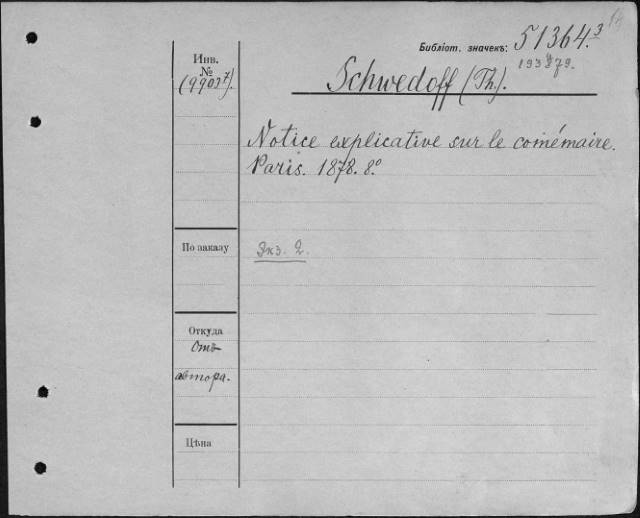 Библіот. значекъ: 51364.3
Инв.
№
(9903⁷).
Schwedoff (Th.).
Notice explicative sur le comémaire.
Paris. 1878. 8º
По заказу
Экз. 2.
Откуда
Отъ
автора.
Цѣна